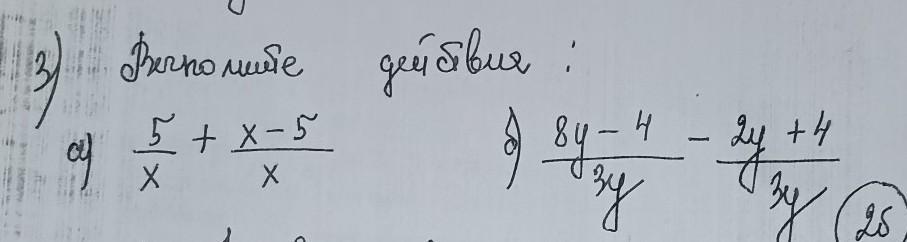 3) Выполните действия :
а) 5/x + x-5/x б) 8y-4/3y - 2y+4/3y
(2б